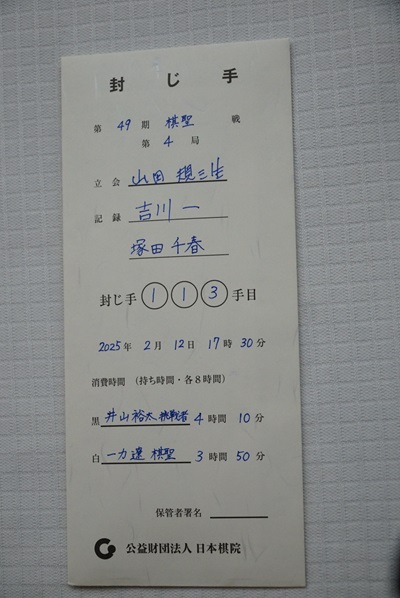 封じ手
第 49 期 棋聖 戦
第 4 局
立会 山田規三生
記録 吉川一
塚田千春
封じ手 1 1 3 手目
2025年 2月 12日 17時 30分
消費時間 (持ち時間・各8時間)
黒 井山裕太 挑戦者 4時間 10分
白 一力遼 棋聖 3時間 50分
保管者署名
公益財団法人 日本棋院